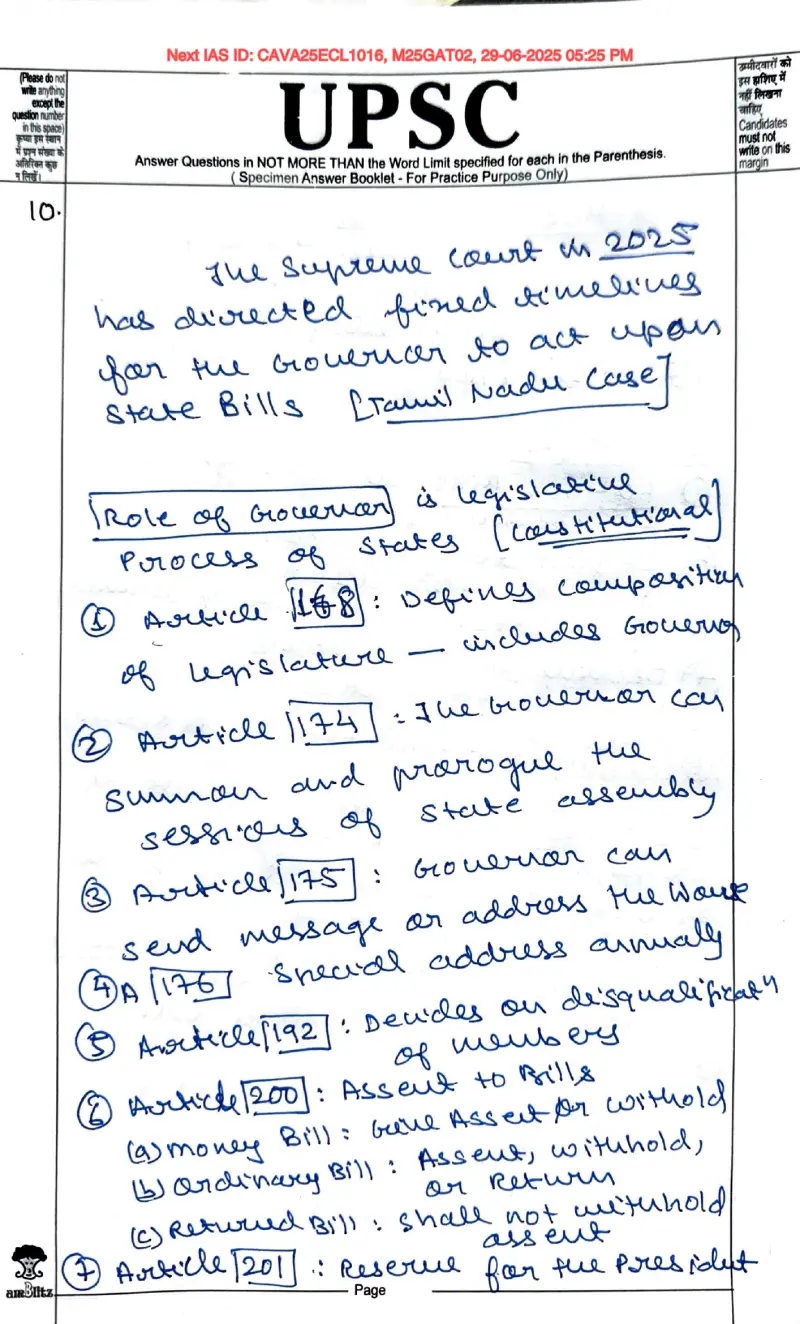 Next IAS ID: CAVA25ECL1016, M25GAT02, 29-06-2025 05:25 PM
(Please do not
write anything
except the
question number
in this space)
कृपया इस स्थान
में प्रश्न संख्या के
अतिरिक्त कुछ
न लिखें।
UPSC
Answer Questions in NOT MORE THAN the Word Limit specified for each in the Parenthesis.
( Specimen Answer Booklet - For Practice Purpose Only)
उम्मीदवारों को
इस हाशिए में
नहीं लिखना
चाहिए
Candidates
must not
write on this
margin
10.
The Supreme Court in 2025
has directed fixed timelines
for the Governor to act upon
State Bills [Tamil Nadu Case]
Role of Governor is legislative
Process of States [Constitutional]
① Article 168 : Defines composition
of legislature — includes Governor
② Article 174 : The Governor can
summon and prorogue the
sessions of state assembly
③ Article 175 : Governor can
send message or address the House
④ A 176 Special address annually
⑤ Article 192 : Decides on disqualification
of members
⑥ Article 200 : Assent to Bills
(a) Money Bill : Give Assent or withold
(b) Ordinary Bill : Assent, withhold,
or Return
(c) Returned Bill : Shall not withhold
assent
⑦ Article 201 : Reserve for the President
Page